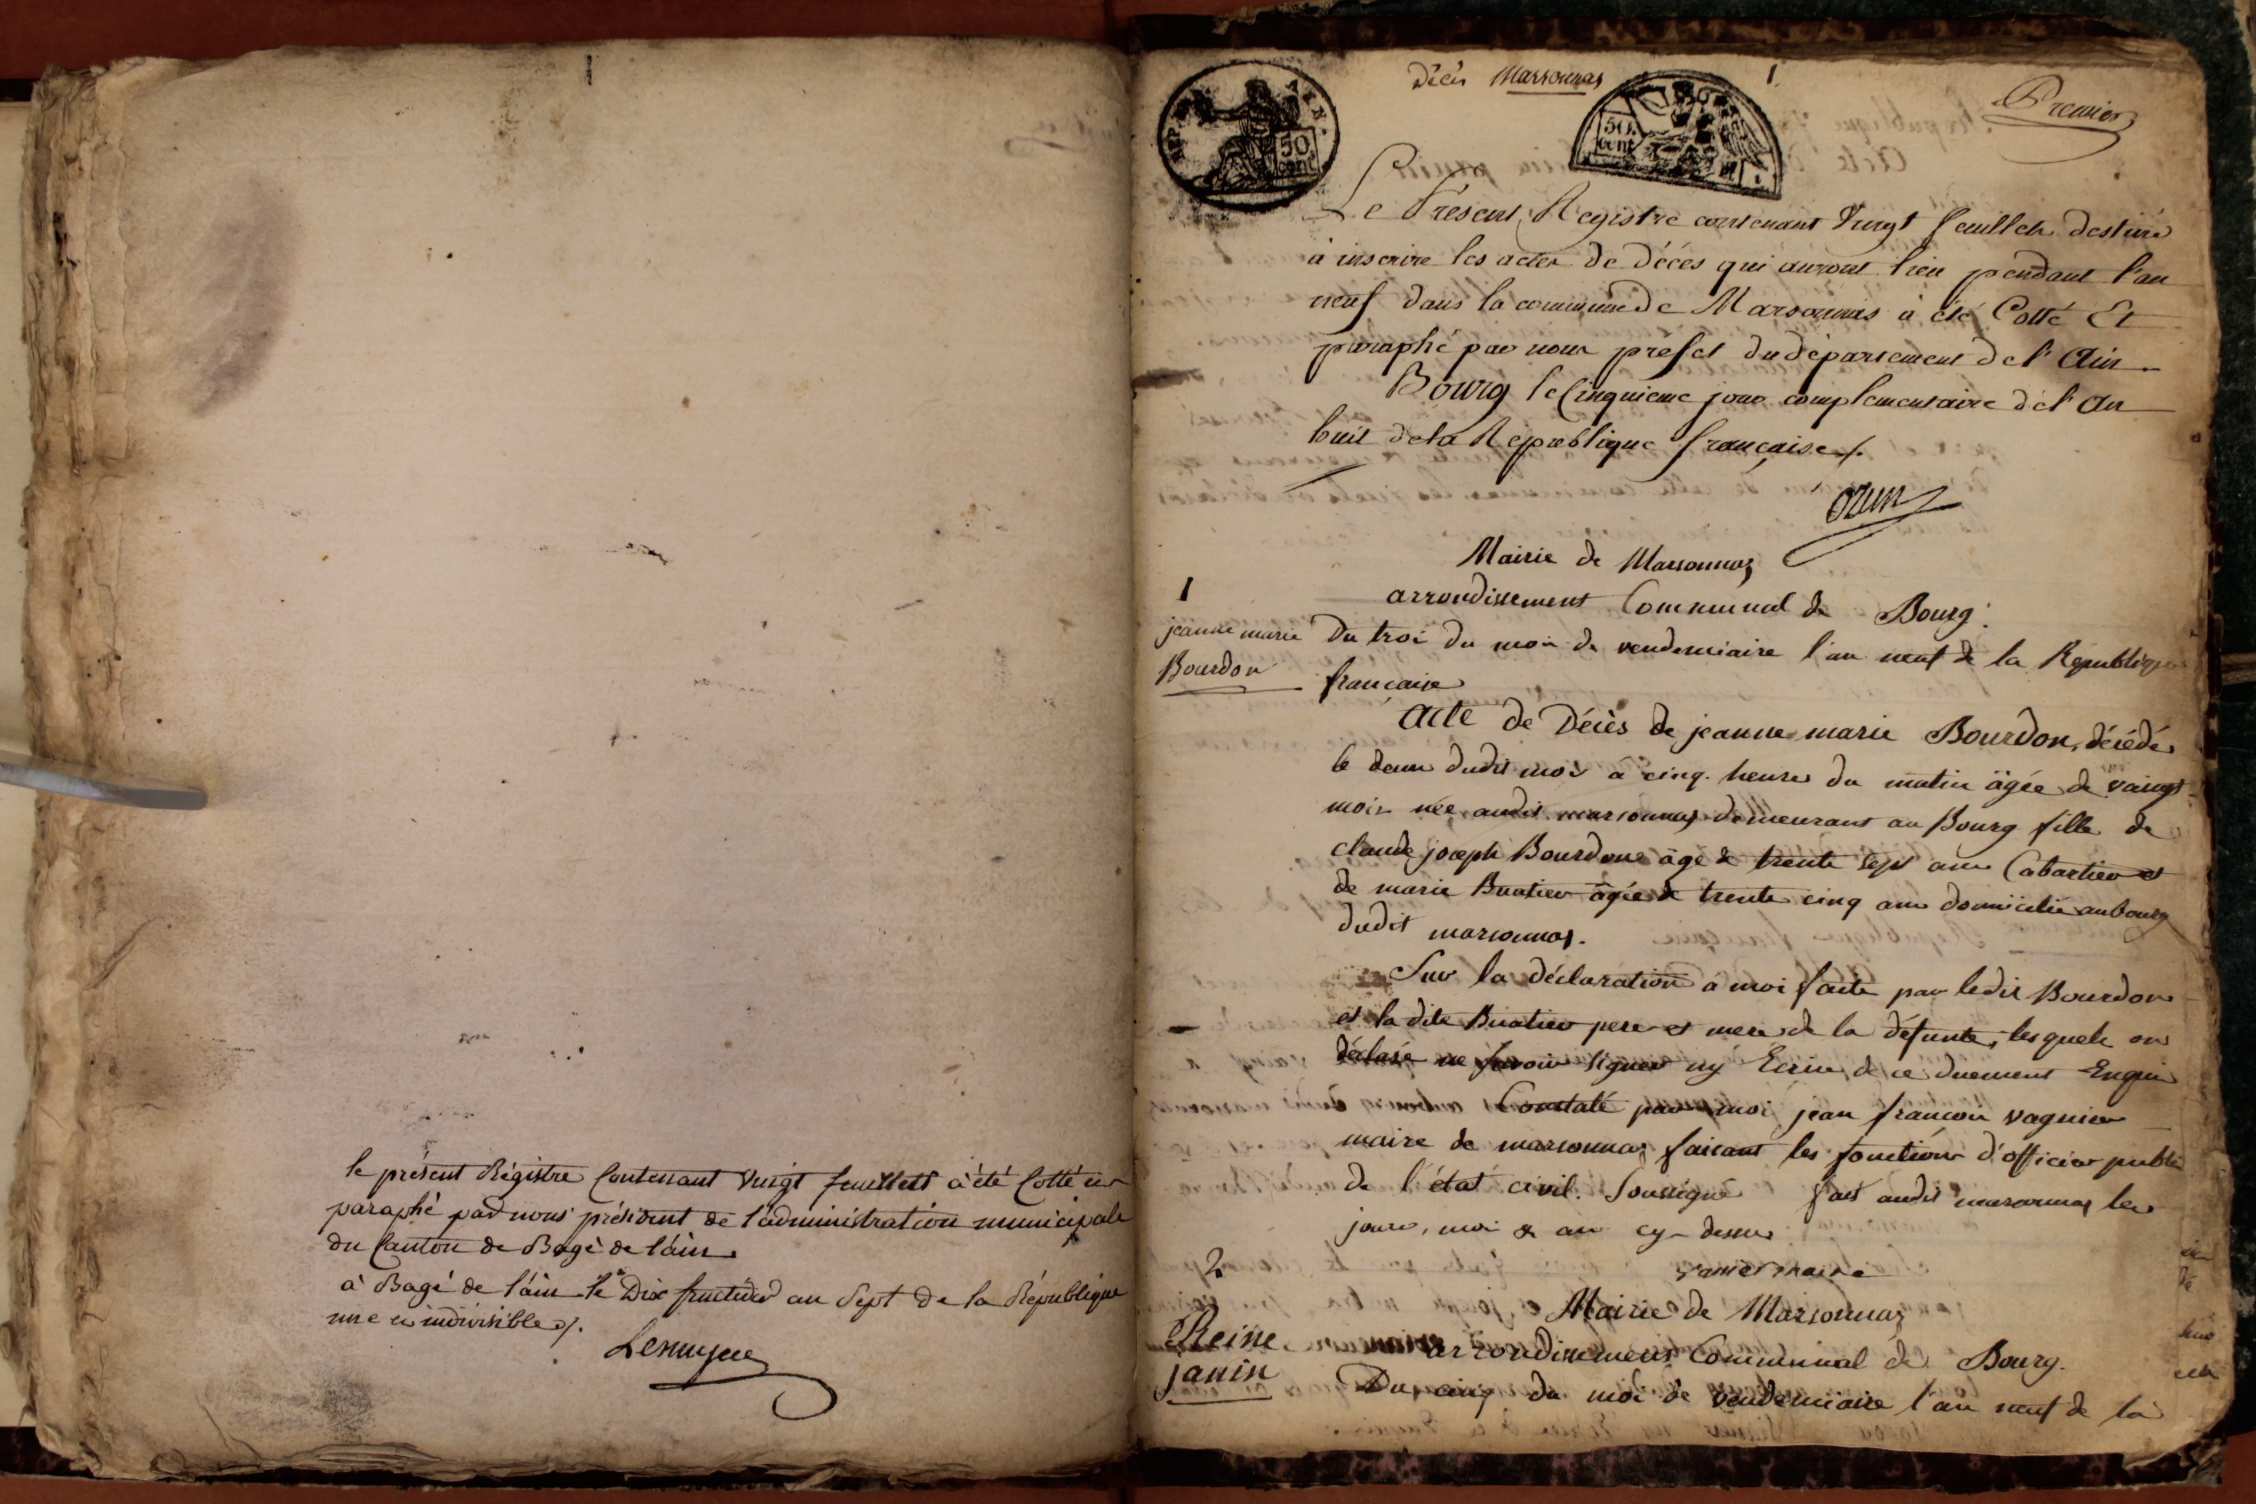 le présent Régistre Contenant Vingt feuillets à été Cotté et
paraphé par nous président de l'administration municipale
du Canton de Bagé de l'ain
à Bagé de l'ain le Dix fructidor an Sept de la République
une et indivisible /.
décès Marsonnas
1
Premier
50 cent
50 cent
Le Présent Registre contenant Vingt feuillets destiné
à inscrire les actes de décès qui auront lieu pendant l'an
neuf dans la commune de Marsonnas a été Cotté Et
paraphé par nous préfet du département de l'Ain
Bourg le Cinquieme jour complementaire de l'An
huit de la République française /.
Ozun
Mairie de Marsonnas
arrondissement Communal de Bourg.
1
jeanne marie
Bourdon
Du troi du moi de vendemiaire l'an neuf de la Republique
française
Acte de Décès de jeanne marie Bourdon, décédé
le deux dudit moi à cinq heures du matin âgée de vaingt
mois née audit marsonnas demeurant au Bourg fille de
claude joseph Bourdon âgé de trente sept ans Cabartier et
de marie Buatier âgée de trente cinq ans domicilié au bourg
dudit marsonnas.
Sur la déclaration à moi faite par ledit Bourdon
et la dite Buatier pere et mere de la défunte, lesquels on
déclaré ne savoir signer ny Ecrire de ce duement Enquis
Constaté par moi jean françoi vagnier
maire de marsonnas faisant les fonctions d'officier public
de l'état civil. Soussigné fait audit marsonnas les
jours, moi & an cy-dessus
maire
2
Mairie de Marsonnas
arrondissement Communal de Bourg.
Reine
janin
Du cinq du moi de vendemiaire l'an neuf de la